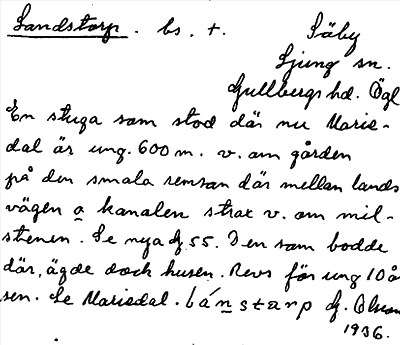 Landstorp. bs. +. Säby
Ljung sn.
Gullbergs hd. Ögl
En stuga som stod där nu Marie-
dal är ung. 600 m. v. om gården
på den smala remsan där mellan lands
vägen o kanalen strax v. om mil-
stenen. Se nya 55. Den som bodde
där, ägde dock husen. Revs för ung 10 å
sen. Se Mariedal. lánstarp
1936.